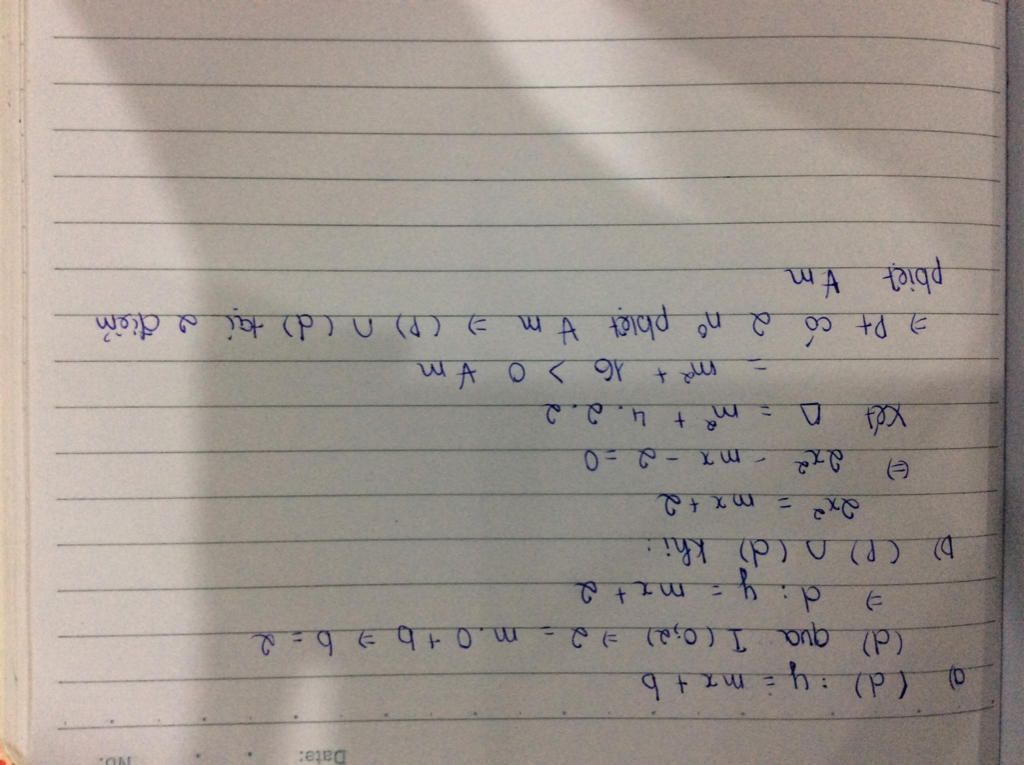 No.
Date:
a) (d) : y = mx + b
(d) qua I (0;2) ⇒ 2 = m.0 + b ⇒ b = 2
⇒ d : y = mx + 2
b) (P) ∩ (d) khi :
2x² = mx + 2
⇔ 2x² - mx - 2 = 0
Xét Δ = m² + 4.2.2
= m² + 16 > 0 ∀m
⇒ Pt có 2 n⁰ pbiệt ∀m ⇒ (P) ∩ (d) tại 2 điểm
pbiệt ∀m